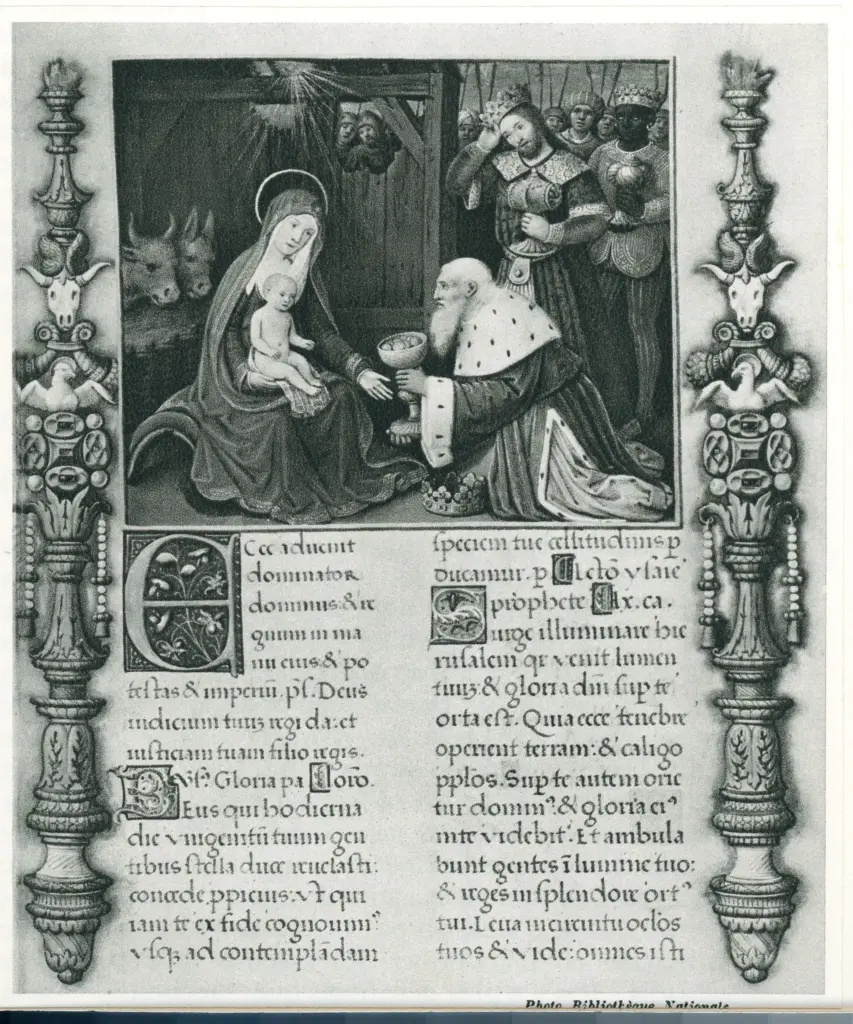 Ecce advenit
dominator
dominus: & re
gnum in ma
nu eius: & po
testas & imperiũ. ps̃. Deus
iudicium tuuʒ regi da: et
iusticiam tuam filio regis.
Gloria pa Oro.
Deus qui hodierna
die vnigenitũ tuum gen
tibus stella duce reuelasti:
concede ppicius: vt qui
iam te ex fide cognouimꝰ
vsqʒ ad contemplãdam
speciem tue celsitudinis p
ducamur. p Lectõ ysaie
prophete lx. ca.
Surge illuminare hie
rusalem qr venit lumen
tuuʒ: & gloria dñi sup te
orta est. Quia ecce tenebre
operient terram: & caligo
pplos. Sup te autem orie
tur dominꝰ. & gloria eiꝰ
in te videbit̃. Et ambula
bunt gentes ĩ lumine tuo:
& reges in splendore ortꝰ
tui. Leua in circuitu oclos
tuos & vide: omnes isti
Photo Bibliothèque Nationale